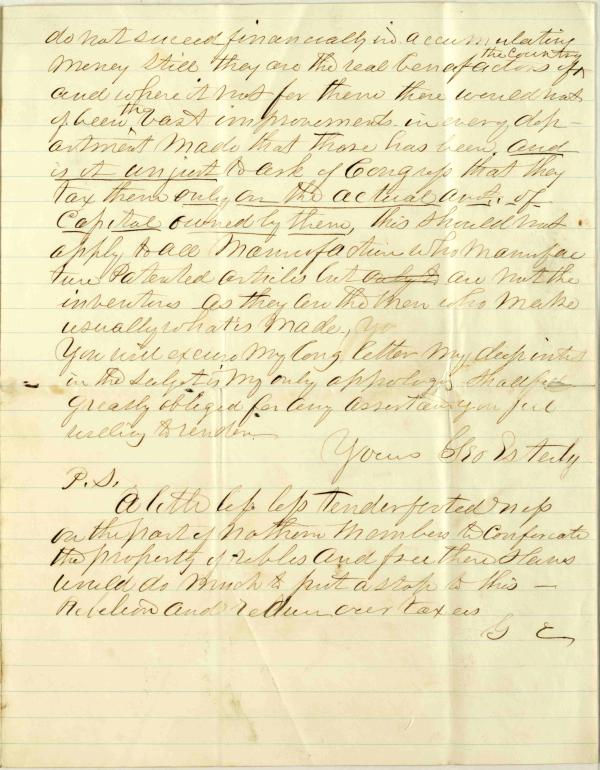 do not suceed financially in accumulating
money still they are the real benefactors of the Country
and where it not for them there would not
of been the vast improvements in every dep-
artment made that those has been, and
is it unjust to ask of Congress that they
tax them only on the actual amt. of
Capital owned by them, this should not
apply to all Manufacturs who Manufac
ture Patented articles but only to are not the
inventors as they are the Men who Make
usually what is Made, Yo
You will excuse My long letter My deep intrst
in the subject is My only appology, shall feel
greatly obliged for any assistance you feel
willing to render
Yours Geo Esterly
P.S.
A little less tenderfooted ness
on the part of nothern Members to Confiscate
the property of rebles and free there slaves
would do Much to put a stop to this —
Rebelion and reduce over taxes
G E